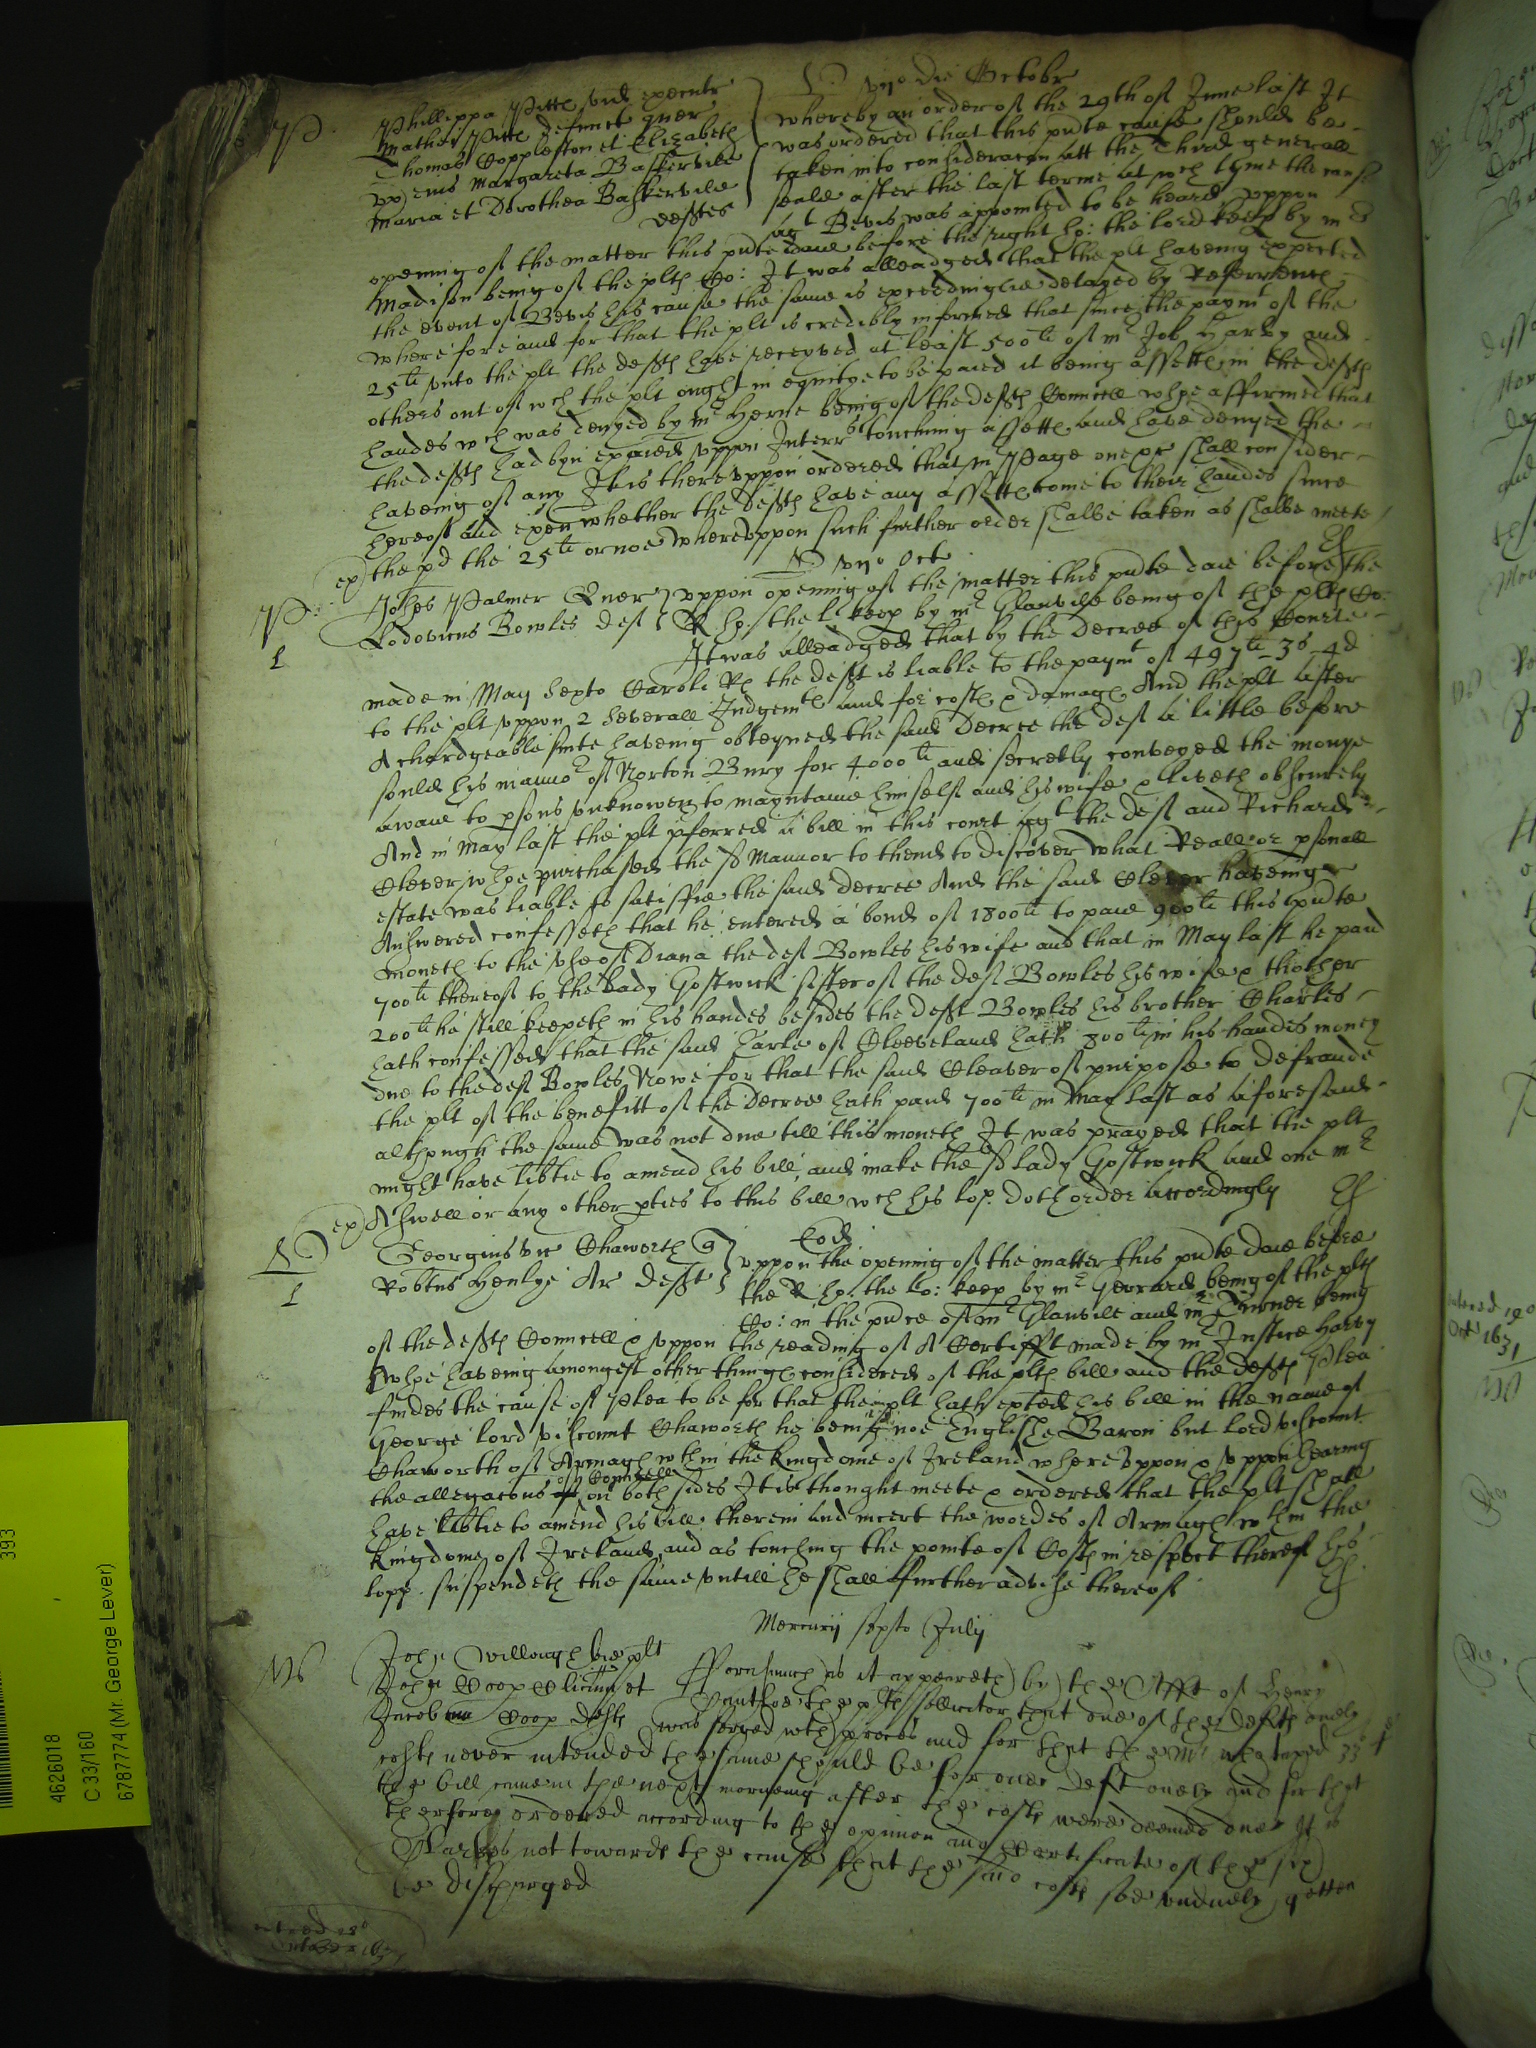 Phillippa Pitt vid executr
Mathei Pitt defunct quer
Thomas Coppleston et Elizabeth
ux eius Margareta Baskervile
Maria et Dorothea Baskervile
deftes
viio die Octobr
whereby an order of the 29th of June last It
was ordered that this pnte cause should be
taken into consideracon att the third generall
seale after the last terme att wch tyme the cause
agt Bevis was appointed to be heard uppon
opening of the matter this pnte daie before the right ho: the lord keep by mr
Madison being of the plts Co: It was alleadged that the plt haveing expected
the event of Bevis his cause the same is exceedinglie delayed by References
wherefore and for that the plt is credibly informed that since the paymt of the
25li unto the plt the defts have receyved at least 500li of mr Job Harby and
others out of wch the plt ought in equitye to be paied it being assetts in the defts
handes wch was denyed by mr Herne being of the defts Councell whoe affirmed that
the defts had byn exaied uppon Interrs touching assetts and have denyed the
haveing of any It is thereuppon ordered that mr Page one &c shall consider
hereof and exan whether the defts have any assetts come to their handes since
the pd the 25li or noe whereuppon such further order shalbe taken as shalbe meete
viio Oct
Johes Palmer Quer
Lodovicus Bowles deft
uppon opening of the matter this pnte daie before the
R. ho: the L keep by mr Glanvile being of the plts Co:
It was alleadged that by the Decree of this Courte
made in May sexto Caroli Rs the deft is liable to the paymt of 497li 3s 4d
to the plt uppon 2 severall Judgemts and for costs & damags And the plt after
A chardgeable suite haveing obteyned the said Decree the deft a little before
sould his mannor of Norton Bury for 4000li and secretly conveyed the monye
awaie to psons unknowen to mayntaine himself and his wife & liveth obscurely
And in May last the plt pferred a bill in this court agt the deft and Richard
Clever whoe purchased the sd Mannor to thend to discover what Reall or psonall
estate was liable to satisfie the said decree And the said Clever haveing
Answered confesseth that he entered a bond of 1800li to paie 900li this pnte
moneth to the use of Diana the deft Bowles his wife and that in May last he paid
700li thereof to the Lady Gostwick sister of the deft Bowles his wife & thother
200li he still keepeth in his handes besides the deft Bowles his brother Charles
hath confessed that the said Earle of Cleeveland hath 800li in his handes money
due to the deft Bowles Nowe for that the said Cleaver of purpose to defraude
the plt of the benefitt of the Decree hath paid 700li in May last as aforesaid
although the same was not due till this moneth It was prayed that the plt
might have libtie to amend his bill and make the sd lady Gostwick and one mr
Ashwell or any other pties to this bill wch his lop. doth order accordingly
Georgius vic Chaworth q
Robtus Henlye Ar deft
Eod
uppon the opening of the matter this pnte daie before
the R. ho. the lo: keep by mr Gerrard being of the plts
Co: in the pnce of mr Glanvile and mr Turner being
of the defts Councell & uppon the reading of A Certifft made by mr Justice Harvy
whoe haveing amongest other things considered of the plts bill and the defts Plea
findes the cause of Plea to be for that the plt hath exted his bill in the name of
George lord viscount Chaworth he being noe Englishe Baron but lord viscount
Chaworth of Armagh wthin the kingdome of Ireland whereuppon & uppon hearing
of Councell
the allegacons on both sides It is thought meete & ordered that the plt shall
have libtie to amend his bill therein and incert the wordes of Armagh wthin the
kingdome of Ireland, and as touching the pointe of Costs in respect thereof his
lopp. suspendeth the same untill he shall further advise thereof
Mercurij sexto Julij
John Willoughbie plt
John Coop et
Jacob Coop defts
Forasmuch as it appeareth by the Afft of Henry
the plts sollicitor that one of the defts onely
was served wth proces and for that the mr
costs never intended the same should be for one deft onely and for that
the bill came in the next morneing after the costs were deemed due It is
therfore ordered according to the opinion and Certificate of the six
Clarkes not towards the cause that the said costs soe unduely gotten
be discharged
4626018
C 33/160
6787774 (Mr. George Lever)
393